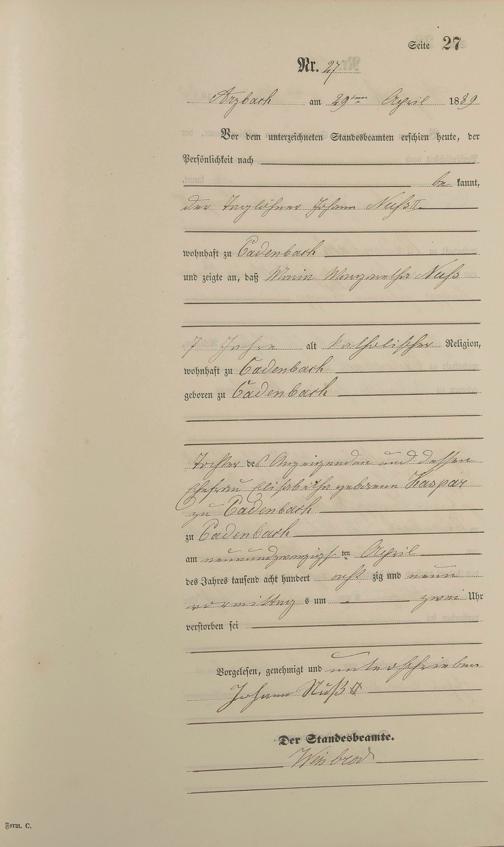 Seite 27
Nr. 27
Arzbach am 29ten April 1889
Vor dem unterzeichneten Standesbeamten erschien heute, der
Persönlichkeit nach
be kannt,
der Taglöhner Johann Nuß II.
wohnhaft zu Cadenbach
und zeigte an, daß Maria Margaretha Nuß
7 Jahre alt katholischer Religion,
wohnhaft zu Cadenbach
geboren zu Cadenbach
Tochter des Anzeigenden und dessen
Ehefrau Elisabetha geborene Kaspar
zu Cadenbach
zu Cadenbach
am neunundzwanzigsten April
des Jahres tausend acht hundert acht zig und neun
vormittags um zwei Uhr
verstorben sei
Vorgelesen, genehmigt und unterschrieben
Johann Nuß II
Der Standesbeamte.
Form. C.